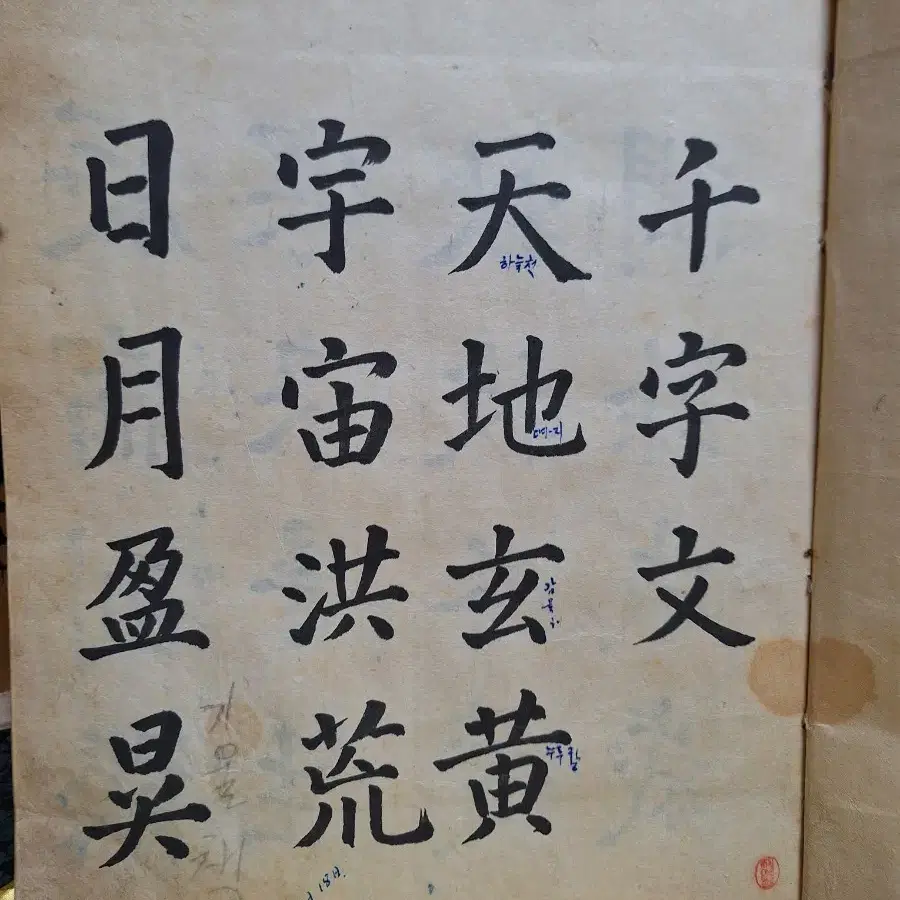 千字文
天地玄黄
하늘천
누루황
宇宙洪荒
日月盈昃